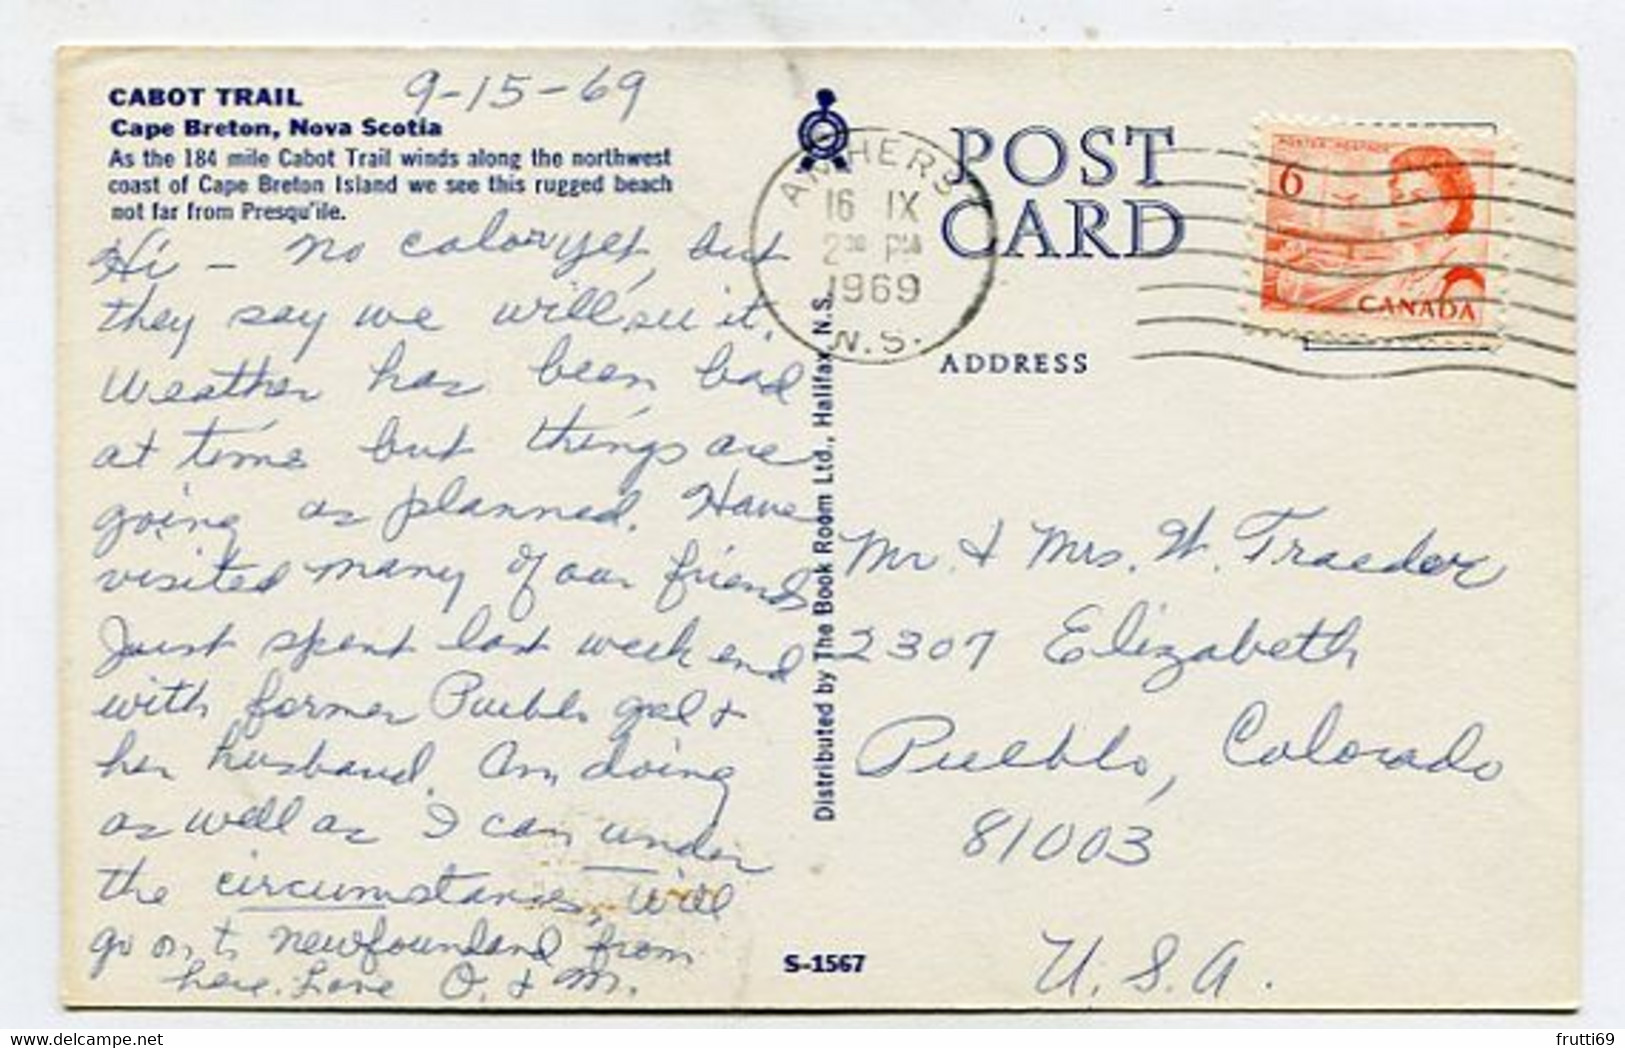 CABOT TRAIL
9-15-69
Cape Breton, Nova Scotia
As the 184 mile Cabot Trail winds along the northwest
coast of Cape Breton Island we see this rugged beach
not far from Presqu'ile.
Hi - no color yet, but
they say we will see it.
Weather has been bad
at time but things are
going as planned. Have
visited many of our friends
Just spent last week end
with former Pueblo gal &
her husband. Am doing
as well as I can under
the circumstances, will
go on to Newfoundland from
here. Love O. & M.
Distributed by The Book Room Ltd., Halifax, N.S.
S-1567
POST
CARD
ADDRESS
AMHERST
16 IX
2 PM
1969
N.S.
6
CANADA
Mr. & Mrs. W. Traeder
2307 Elizabeth
Pueblo, Colorado
81003
U.S.A.
delcampe.net
frutti69